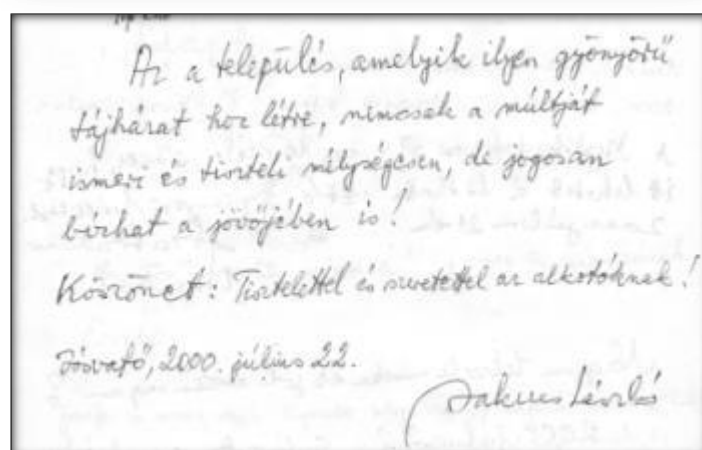 Az a település, amelyik ilyen gyönyörű
tájházat hoz létre, nemcsak a múltját
ismeri és tiszteli mélységesen, de jogosan
bízhat a jövőjében is!
Köszönet: Tisztelettel és szeretettel az alkotóknak!
Jósvafő, 2000. július 22.
Jakucs László